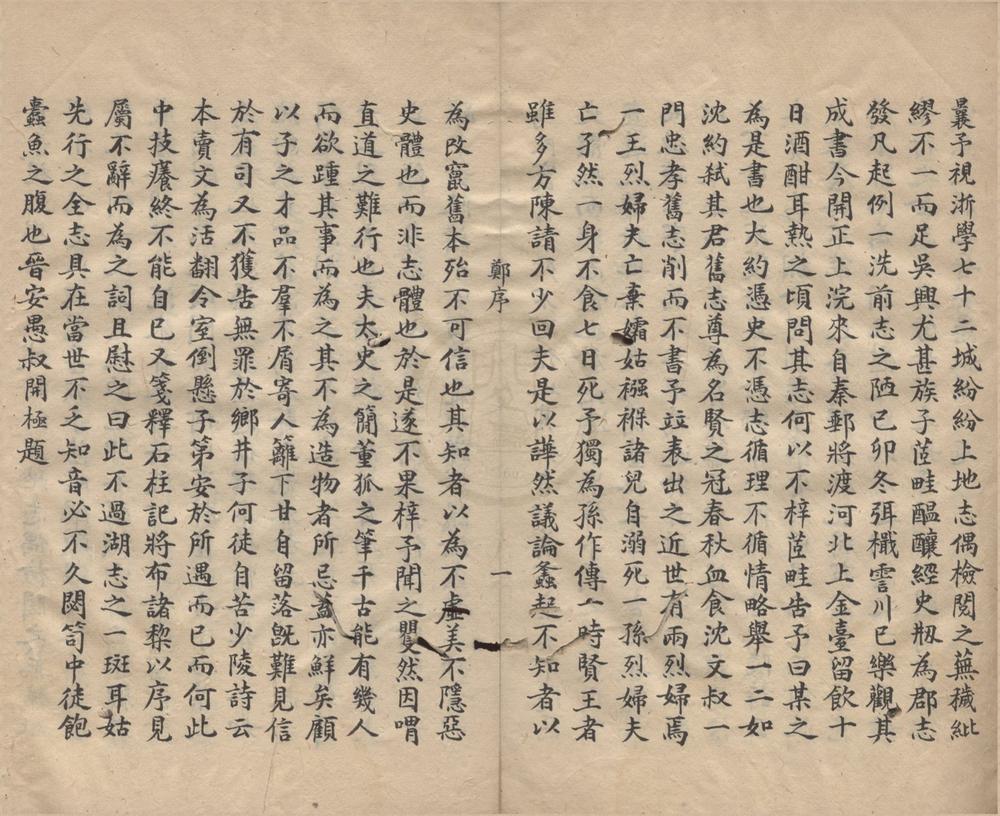 曩予視浙學七十二城紛紛上地志偶檢閱之蕪穢紕
繆不一而足吳興尤甚族子茝畦醖釀經史刱為郡志
發凡起例一洗前志之陋已卯冬弭檝霅川已樂觀其
成書今開正上浣來自秦郵將渡河北上金臺留飲十
日酒酣耳熱之頃問其志何以不梓茝畦告予曰某之
為是書也大約憑史不憑志循理不循情略舉一二如
沈約弒其君舊志尊為名賢之冠春秋血食沈文叔一
門忠孝舊志削而不書予竝表出之近世有兩烈婦焉
一王烈婦夫亡棄孀姑襁褓諸兒自溺死一孫烈婦夫
亡孑然一身不食七日死予獨為孫作傳一時賢王者
雖多方陳請不少回夫是以譁然議論螽起不知者以
鄭序
一
為改竄舊本殆不可信也其知者以為不虛美不隱惡
史體也而非志體也於是遂不果梓予聞之矍然因喟
直道之難行也夫太史之簡董狐之筆千古能有幾人
而欲踵其事而為之其不為造物者所忌蓋亦鮮矣顧
以子之才品不羣不屑寄人籬下甘自留落旣難見信
於有司又不獲告無罪於鄉井子何徒自苦少陵詩云
本賣文為活翻令室倒懸子第安於所遇而已而何此
中技癢終不能自已又箋釋石柱記將布諸棃以序見
屬不辭而為之詞且慰之曰此不過湖志之一斑耳姑
先行之全志具在當世不乏知音必不久閟笥中徒飽
蠹魚之腹也晉安愚叔開極題